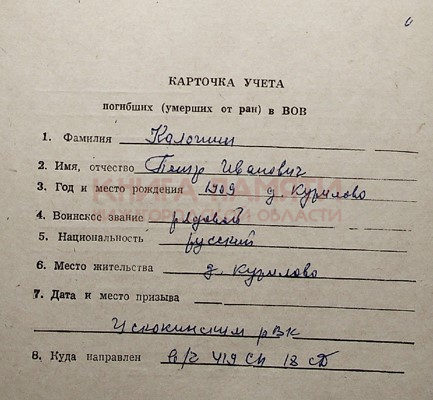 КАРТОЧКА УЧЕТА
погибших (умерших от ран) в ВОВ
1. Фамилия Калочкин
2. Имя, отчество Петр Иванович
3. Год и место рождения 1909 д. Курилово
КНИГА ПАМЯТИ
ОБЛАСТИ
4. Воинское звание рядовой
5. Национальность русский
6. Место жительства д. Курилово
7. Дата и место призыва
РВК
8. Куда направлен в/ч 419 СП 18 СД